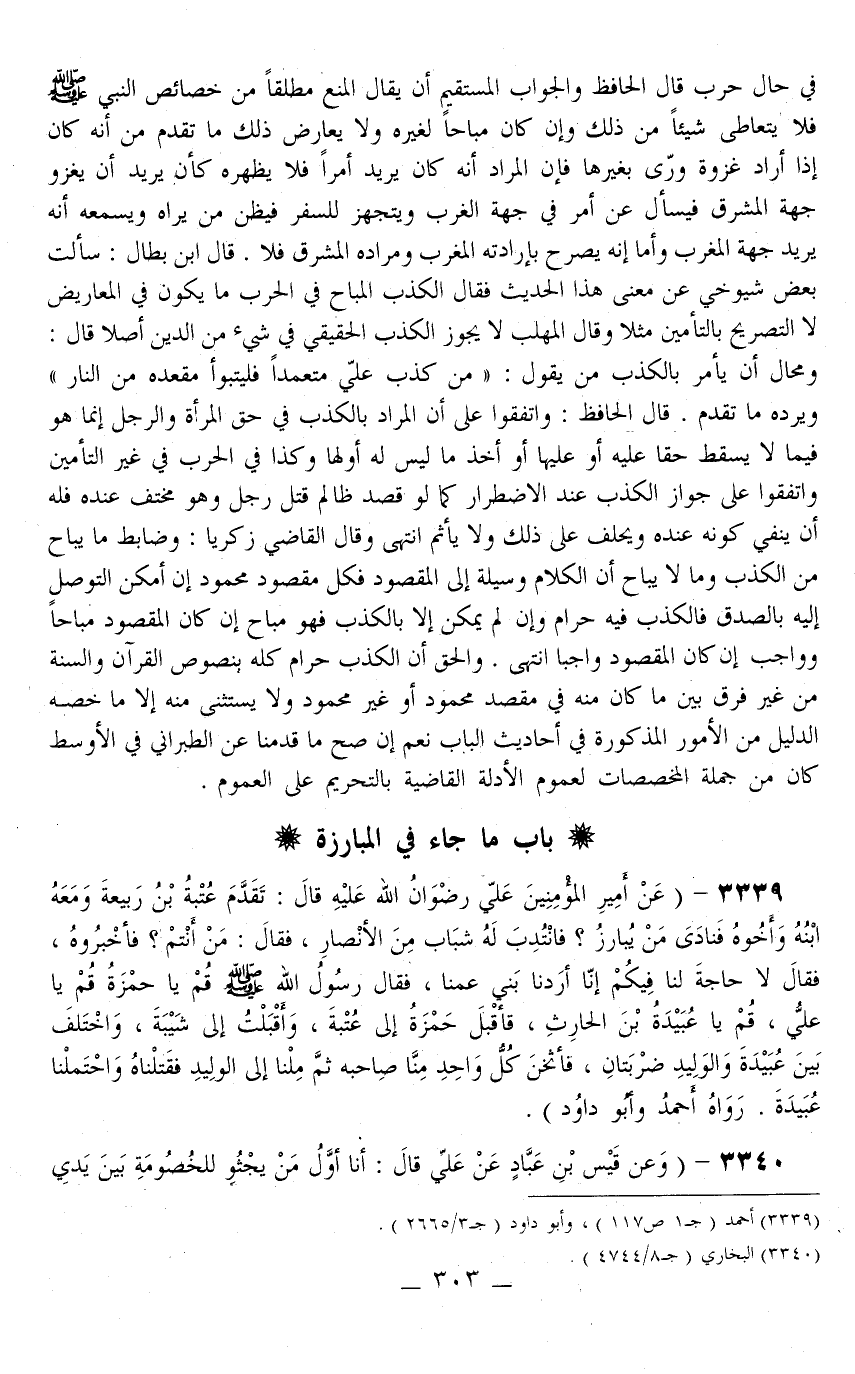 في حال حرب قال الحافظ والجواب المستقيم أن يقال المنع مطلقاً من خصائص النبي ﷺ
فلا يتعاطى شيئاً من ذلك وإن كان مباحاً لغيره ولا يعارض ذلك ما تقدم من أنه كان
إذا أراد غزوة ورّى بغيرها فإن المراد أنه كان يريد أمراً فلا يظهره كأن يريد أن يغزو
جهة المشرق فيسأل عن أمر في جهة الغرب ويتجهز للسفر فيظن من يراه ويسمعه أنه
يريد جهة المغرب وأما إنه يصرح بإرادته المغرب ومراده المشرق فلا . قال ابن بطال : سألت
بعض شيوخي عن معنى هذا الحديث فقال الكذب المباح في الحرب ما يكون في المعاريض
لا التصريح بالتأمين مثلا وقال المهلب لا يجوز الكذب الحقيقي في شيء من الدين أصلا قال :
ومحال أن يأمر بالكذب من يقول : « من كذب عليّ متعمداً فليتبوأ مقعده من النار »
ويرده ما تقدم . قال الحافظ : واتفقوا على أن المراد بالكذب في حق المرأة والرجل إنما هو
فيما لا يسقط حقا عليه أو عليها أو أخذ ما ليس له أولها وكذا في الحرب في غير التأمين
واتفقوا على جواز الكذب عند الاضطرار كما لو قصد ظالم قتل رجل وهو مختف عنده فله
أن ينفي كونه عنده ويحلف على ذلك ولا يأثم انتهى وقال القاضي زكريا : وضابط ما يباح
من الكذب وما لا يباح أن الكلام وسيلة إلى المقصود فكل مقصود محمود إن أمكن التوصل
إليه بالصدق فالكذب فيه حرام وإن لم يمكن إلا بالكذب فهو مباح إن كان المقصود مباحاً
وواجب إن كان المقصود واجبا انتهى . والحق أن الكذب حرام كله بنصوص القرآن والسنة
من غير فرق بين ما كان منه في مقصد محمود أو غير محمود ولا يستثنى منه إلا ما خصه
الدليل من الأمور المذكورة في أحاديث الباب نعم إن صح ما قدمنا عن الطبراني في الأوسط
كان من جملة المخصصات لعموم الأدلة القاضية بالتحريم على العموم .
❋ باب ما جاء في المبارزة ❋
٣٣٣٩ – ( عَنْ أَمِيرِ المؤْمِنِينَ عَليّ رِضْوَانُ الله عَليْهِ قالَ : تَقَدَّمَ عُتْبةُ بْنُ رَبيعةَ وَمَعَهُ
ابْنُهُ وَأَخُوهُ فَنادَى مَنْ يُبارزُ ؟ فانْتُدِبَ لَهُ شبَاب مِنَ الأنْصارِ ، فقالَ : مَنْ أَنْتمْ ؟ فأخْبرُوهُ ،
فقالَ لا حاجةَ لنا فِيكُمْ إنّا أرَدنا بَني عمنا ، فقال رسُولُ الله ﷺ قُمْ يا حمْزَةُ قُمْ يا
عليُّ ، قُمْ يا عُبَيْدَةُ بْنَ الحارِثِ ، فأقْبلَ حَمْزَةُ إلى عُتْبة ، وَأَقْبَلْتُ إلى شَيْبَةَ ، وَاخْتَلفَ
بَينَ عُبَيْدَةَ وَالوَلِيدِ ضرْبَتانِ ، فأثْخنَ كُلُّ وَاحِدٍ مِنَّا صاحبه ثمَّ مِلْنا إلى الوليدِ فقَتلْناهُ وَاحْتملْنا
عُبَيدَةَ . رَوَاهُ أَحمدُ وأبُو داوُد ) .
٣٣٤٠ – ( وَعن قَيْس بْنِ عَبَّادٍ عَنْ عَليّ قالَ : أنا أوَّلُ مَنْ يجْثُو للخُصُومَةِ بَينَ يَدي
(٣٣٣٩) أحمد ( جـ١ ص١١٧ ) ، وأبو داود ( جـ٣/٢٦٦٥ ) .
(٣٣٤٠) البخاري ( جـ٨/٤٧٤٤ ) .
– ٣٠٣ –